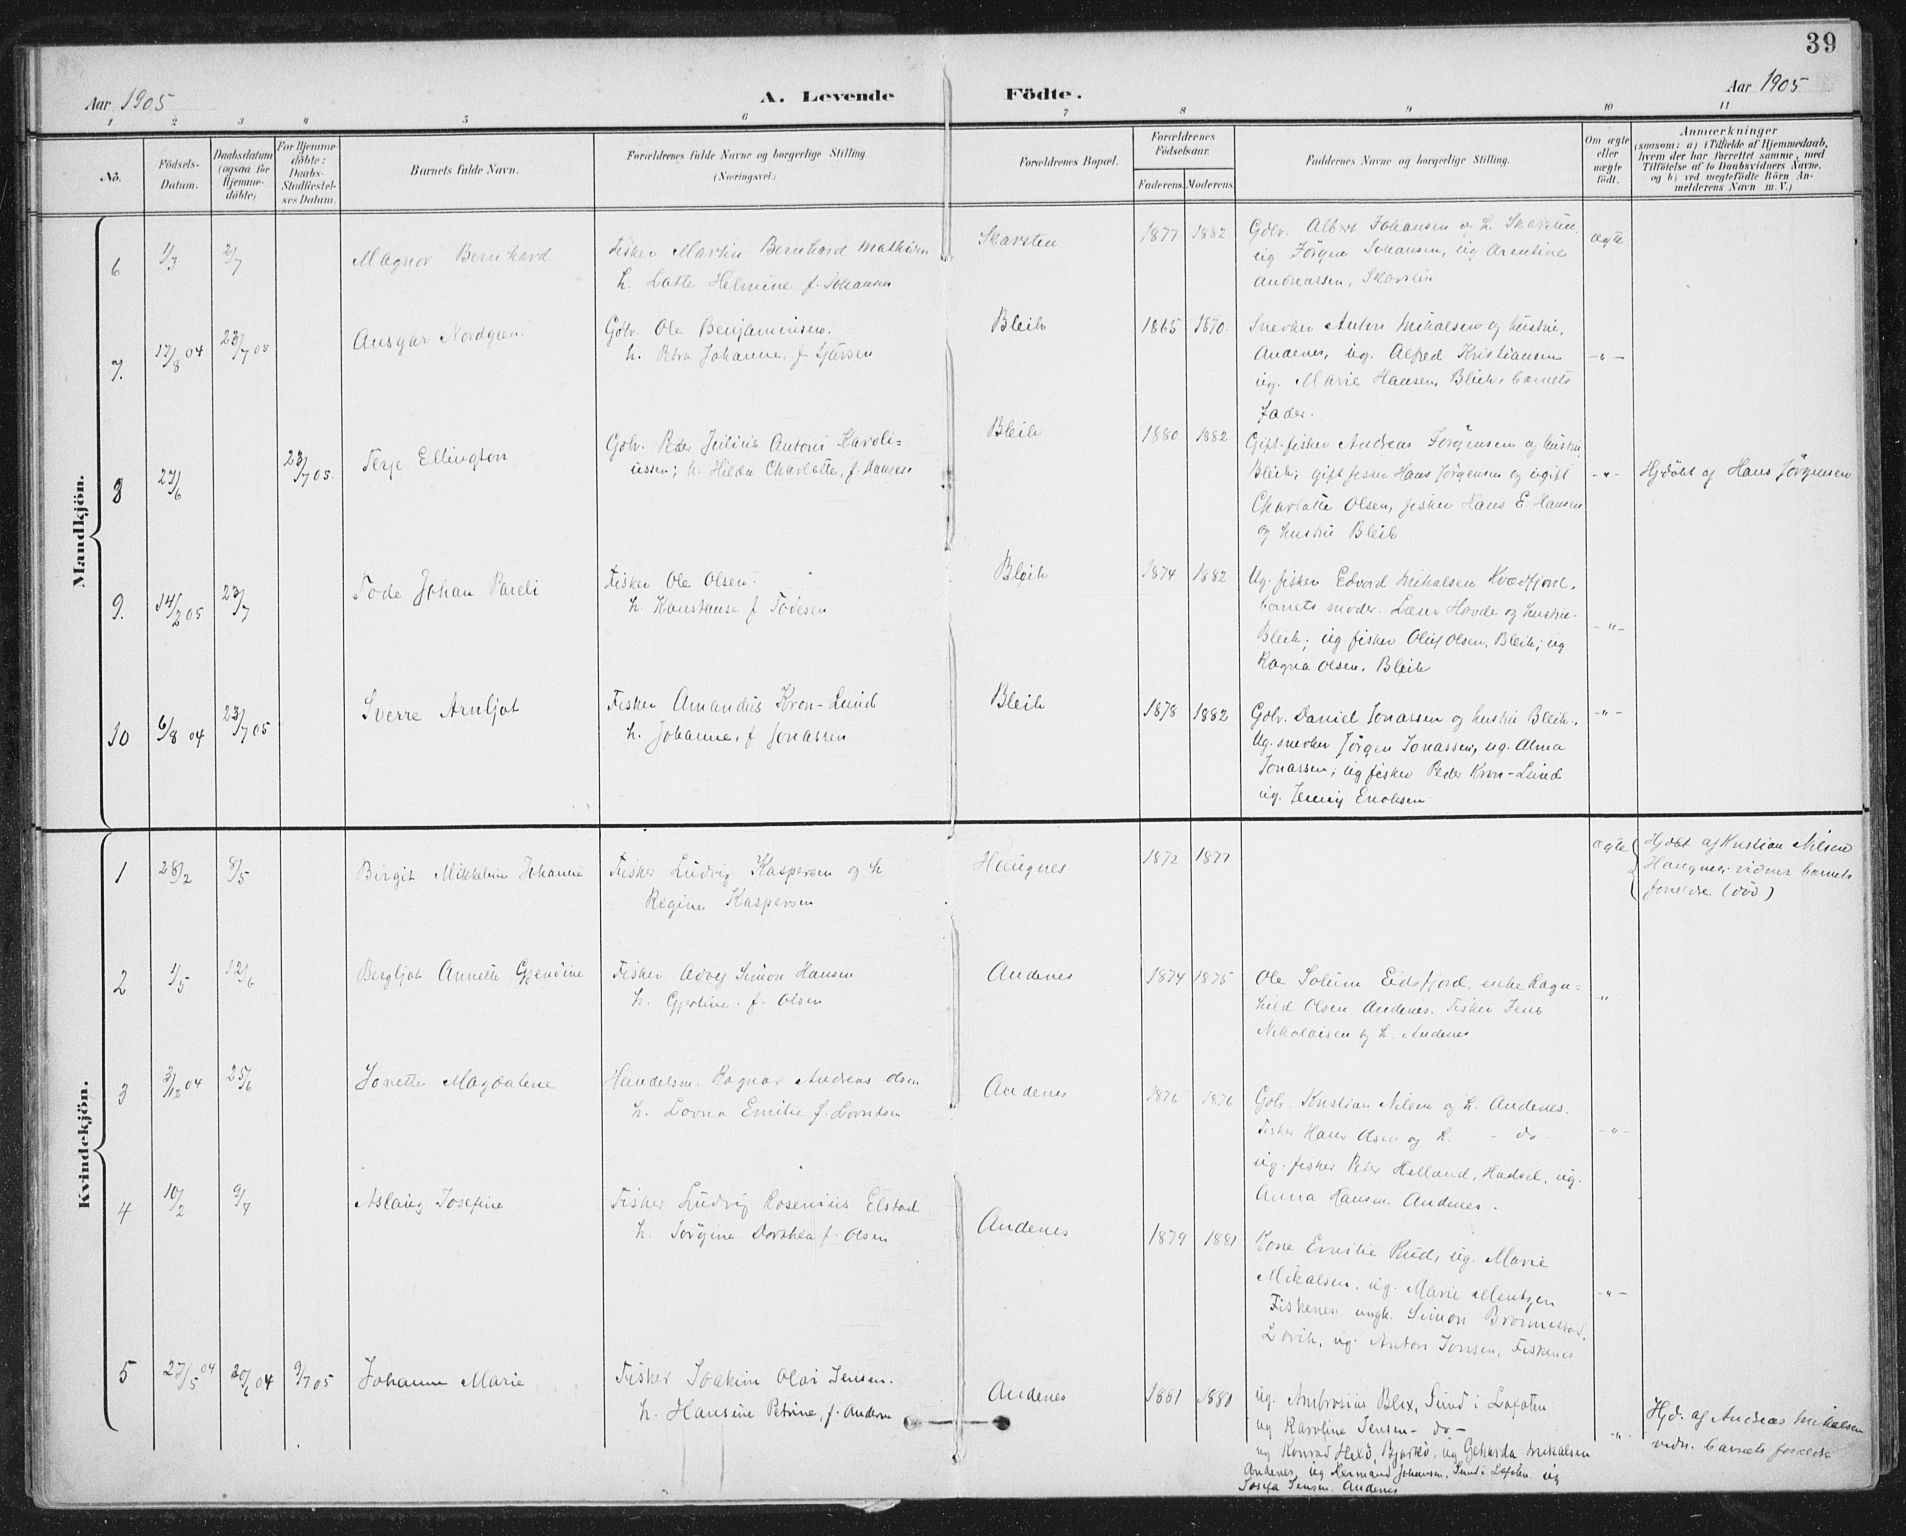 39
Aar 1905 A. Levende Födte. Aar 1905
1 2 3 4 5 6 7 8 9 10 11
No.
Födsels-Datum.
Daabsdatum (ogsaa for Hjemmedöbte)
For Hjemmedöbte: Daabs-Stadfæstelses Datum.
Barnets fulde Navn.
Forældrenes fulde Navne og borgerlige Stilling.
(Næringsvei.)
Forældrenes Bopæl.
Forældrenes Födselsaar.
Faderens. Moderens.
Faddernes Navne og borgerlige Stilling.
Om ægte eller uægte født.
Anmærkninger
(saasom: a) i Tilfælde af Hjemmedaab,
hvem der har forrettet samme, med
Tilföielse af to Daabsvidners Navne.
og b) ved uægtefödte Börn An-
melderens Navn m. V.)
Mandkjön.
6 1/3 2/7 Magnor Bernhard
Fisker Martin Bernhard Mathisen
h. Lotte Helmine f. Johansen
Skarsten 1877 1882
Gbr. Albert Johansen og h. Skarsten,
ug Jörgen Johansen, ug Arentine
Andreassen, Skarsten
ægte
7. 17/8 04 23/7 05 Ansgar Nordgren
Gbr. Ole Benjaminsen.
h. Petra Johanne, f.
Bleik 1865 1870
Snedker Anton Mikalsen og hustru,
Andenes, ug. Alfred Kristiansen
ug. Marie Hansen, Bleik, barnets
fader.
-"-
8 27/6 23/7 05. Terje Ellington
Gbr. Peder Julius Antoni Karoli-
ussen; h. Hilda Charlotte, f. Hansen
Bleik 1880 1882
Gift fisker Andreas Jörgensen og hustru
Bleik; gift fisker Hans Jørgensen og ugift
Charlotte Olsen, fisker Hans E. Hansen
og hustru Bleik
-"- Hjdöbt af Hans Jörgensen
9. 14/2 05 23/7 Tode Johan Pareli
Fisker Ole Olsen.
h. Konstanse f. Todesen
Bleik 1874 1882
Ug. fisker Edvard Mikalsen Kvædfjord.
barnets moder. Lærer Hovde og hustru
Bleik; ug fisker Oluf Olsen, Bleik; ug
Ragna Olsen, Bleik
-"-
10 6/8 04 23/7 05 Sverre Arnljot
Fisker Amandus Kron-Lund
h. Johanne, f Jonassen
Bleik 1878 1882
Gbr. Daniel Jonassen og hustru Bleik.
Ug. snedker Jörgen Jonassen, ug. Alma
Jonassen; ug fisker Peder Kron-Lund
ug. Jenny Enoksen
-"-
Kvindekjön.
1 28/2 8/5 Birgit Mikkeline Johanne
Fisker Ludvig Kaspersen og h
Regine Kaspersen
Haugnes 1872 1877
ægte
Hjdöbt af Kristian Nilsen
Haugnes; vidner barnets
forældre (död)
2 1/5 12/6 Bergljot Annette Gjertine
Fisker Simon Hansen
h. Gjertine. f. Olsen
Andenes 1874 1875
Ole Solum Eidsfjord, enke Ragn-
hild Olsen Andenes. Fisker Jens
Nikolaisen og h. Andenes
-"-
3 3/12 04 25/6 Jonette Magdalene
Handelsm. Ragnar Andreas Olsen
h. Lovna Emilie f.
Andenes 1876 1876
Gbr. Kristian Nilsen og h. Andenes.
Fisker Hans Olsen og h. - do -
ug. fisker Peter Helland, Hadsel, ug.
Anna Hansen. Andenes.
-"-
4 10/2 9/7 Aslaug Josefine
Fisker Ludvig Rosenius Elstad
h. Jörgine Dorthea f. Olsen
Andenes 1879 1881
Kone Emilie Rud, ug. Marie
Mikalsen, ug. Marie Mentzen
Fiskenes ungk. Simon Brommestad,
Lovik, ug. Anton Jonsen, Fiskenes
-"-
5 27/5 04 20/6 04 9/7 05 Johanne Marie
Fisker Joakim Olai Jensen.
h. Hansine Petrine, f.
Andenes 1881 1880
ug. Ambrosius Blix, Sund i Lofoten
ug Karoline Jensen - do -
ug Konrad Held, Bjarkö, ug Geharda Mikalsen
Andenes, ug Hermand Johansen, Sund i Lofoten ug
Josefa Jensen. Andenes
-"-
Hjd. af Andreas Mikalsen
vidn. barnets forældre